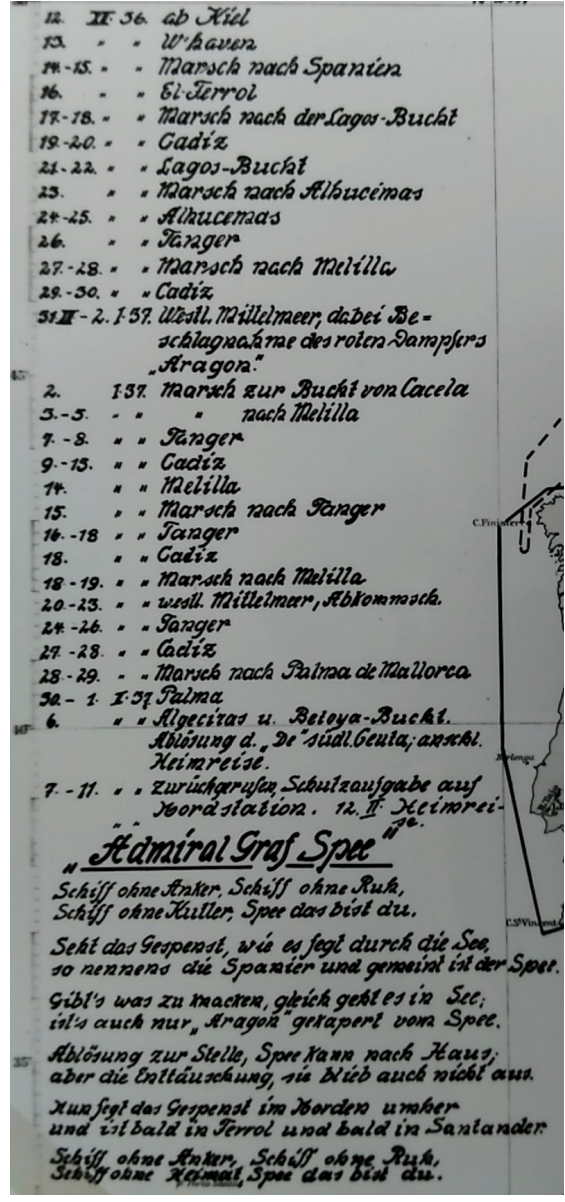 12. XII. 36. ab Kiel
13. " " W'haven
14.-15. " " Marsch nach Spanien
16. " " El-Ferrol
17.-18. " " Marsch nach der Lagos-Bucht
19.-20. " " Cadiz
21.-22. " " Lagos-Bucht
23. " " Marsch nach Alhucemas
24.-25. " " Alhucemas
26. " " Tanger
27.-28. " " Marsch nach Melilla
29.-30. " " Cadiz
31.XII - 2. I.37. Westl. Mittelmeer, dabei Be=
schlagnahme des roten Dampfers
„Aragon."
2. I.37. Marsch zur Bucht von Cacela
3.-5. " " " nach Melilla
7.-8. " " Tanger
9.-13. " " Cadiz
14. " " Melilla
15. " " Marsch nach Tanger
16.-18 " " Tanger
18. " " Cadiz
18-19. " " Marsch nach Melilla
20.-23. " " westl. Mittelmeer, Abkommsch.
24.-26. " " Tanger
27-28. " " Cadiz
28.-29. " " Marsch nach Palma de Mallorca
30.- 1. 37 Palma
6. " " Algeciras u. Betoya-Bucht.
Ablösung d. „De" südl. Ceuta; anschl.
Heimreise.
7.-11. " " zurückgerufen, Schutzaufgabe auf
" " Nordstation. 12. II. Heimrei-
se.
„Admiral Graf Spee"
Schiff ohne Anker, Schiff ohne Ruh,
Schiff ohne Kutter, Spee das bist du.
Seht das Gespenst, wie es fegt durch die See,
so nennens die Spanier und gemeint ist der Spee.
Gibt's was zu knacken, gleich geht es in See;
ist's auch nur „Aragon" gekapert vom Spee.
Ablösung zur Stelle, Spee kann nach Haus;
aber die Enttäuschung, sie blieb auch nicht aus.
Nun fegt das Gespenst im Norden umher
und ist bald in Ferrol und bald in Santander.
Schiff ohne Anker, Schiff ohne Ruh,
Schiff ohne Heimat, Spee das bist du.
C. Finisterre
Berlenga
C. St Vincent
40°
35°